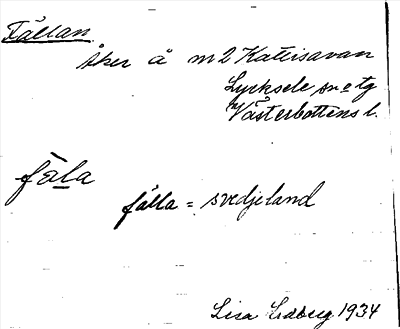 Fällan
Åker å m 2 Kattisavan
Lycksele sn o tg
Västerbottens l.
fä̀la
fälla = svedjeland
Lisa Lidberg 1934